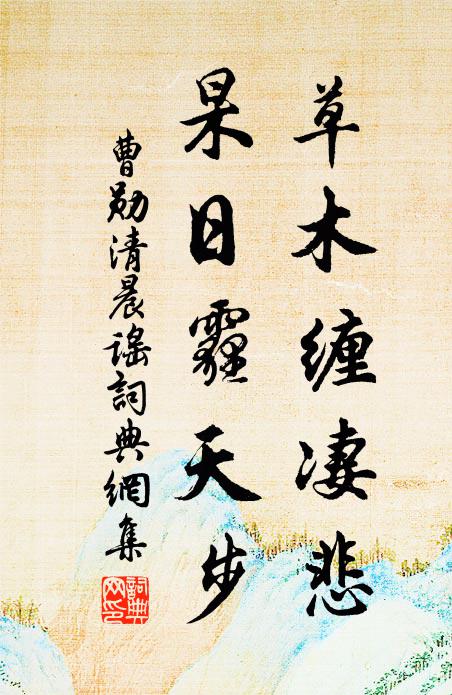 草木缠凄悲
杲日霾天步
曹勋清晨谣詞典網集
詞典
網印